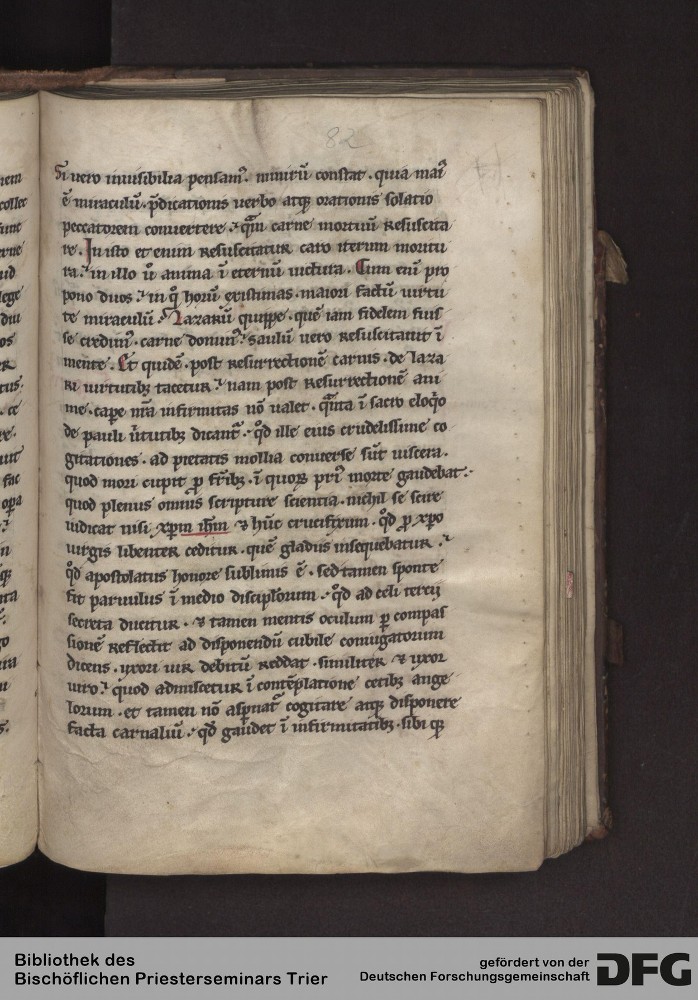 82
Si uero inuisibilia pensam᷒. nimirū constat. quia mai᷒
ē miraculū. p̄dicationis uerbo atq; orationis solatio
peccatorem conuertere. quā carne mortuū resuscita
re. In isto et enim resuscitatur caro iterum moritu
ra. in illo ū anima ī eternū uictura. Cum enī pro
pono duos. in q̊ horū existimas. maiori factū uirtu
te miraculū. Lazarū quippe. quē iam fidelem fuis
se credim᷒. carne domin᷒. saulū uero resuscitauit ī
mente. Et quidē. post resurrectionē carnis. de laza
ri uirtutib; tacetur. nam post resurrectionē ani
me. cape nr̄a infirmitas nō ualet. quāta ī sacro eloq̊o
de pauli ūtutib; dicant᷒. qd̄ ille eius crudelissime co
gitationes. ad pietatis mollia conuerse sūt uiscera.
quod mori cupit p̄ fr̄ib;. ī quoꝝ pri᷒ morte gaudebat.
quod plenus omnis scripture scientia. nichil se scire
iudicat nisi xp̄m ih̄m & hūc crucifixum. qd̄ ꝓ xp̄o
uirgis libenter ceditur. quē gladiis insequebatur.
qd̄ apostolatus honore sublimis ē. sed tamen sponte
fit paruulus ī medio discipl̄orum. qd̄ ad celi tercij
secreta ducitur. & tamen mentis oculum ꝑ compas
sionē reflectit ad disponendū cubile coniugatorum
dicens. uxori uir debitū reddat. similiter & uxor
uiro. quod admiscetur ī contēplatione cetib; ange
lorum. et tamen nō asp̄nat᷒ cogitare atq; disponere
facta carnaliū. qd̄ gaudet ī infirmitatib;. sibi q;
Bibliothek des
Bischöflichen Priesterseminars Trier
gefördert von der
Deutschen Forschungsgemeinschaft
DFG